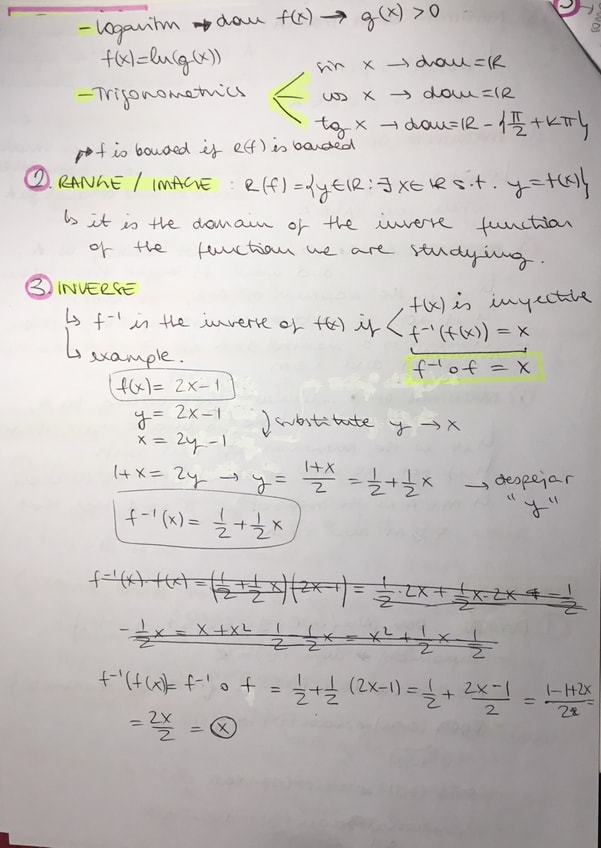 - Logarithm → dom f(x) → g(x) > 0
f(x)=ln(g(x))
- Trigonometrics
sin x → dom = IR
cos x → dom = IR
tg x → dom = IR - {π/2 + kπ}
→ f is bounded if R(f) is bounded
2. RANGE / IMAGE : R(f) = {y ∈ IR : ∃ x ∈ IR s.t. y = f(x)}
↳ it is the domain of the inverse function
of the function we are studying.
3. INVERSE
↳ f⁻¹ is the inverse of f(x) if < f(x) is inyective
f⁻¹(f(x)) = x
f⁻¹ o f = x
↳ example.
f(x) = 2x-1
y = 2x-1
x = 2y-1
substitute y → x
1+x = 2y → y = (1+x)/2 = 1/2 + 1/2 x → despejar "y"
f⁻¹(x) = 1/2 + 1/2 x
f⁻¹(x) · f(x) = (1/2 + 1/2 x)(2x-1) = 1/2 · 2x + 1/2 x · 2x - 1/2
- 1/2 x = x + x² - 1/2 - 1/2 x = x² + 1/2 x - 1/2
f⁻¹(f(x)) = f⁻¹ o f = 1/2 + 1/2 (2x-1) = 1/2 + (2x-1)/2 = (1-1+2x)/2 =
= 2x/2 = x